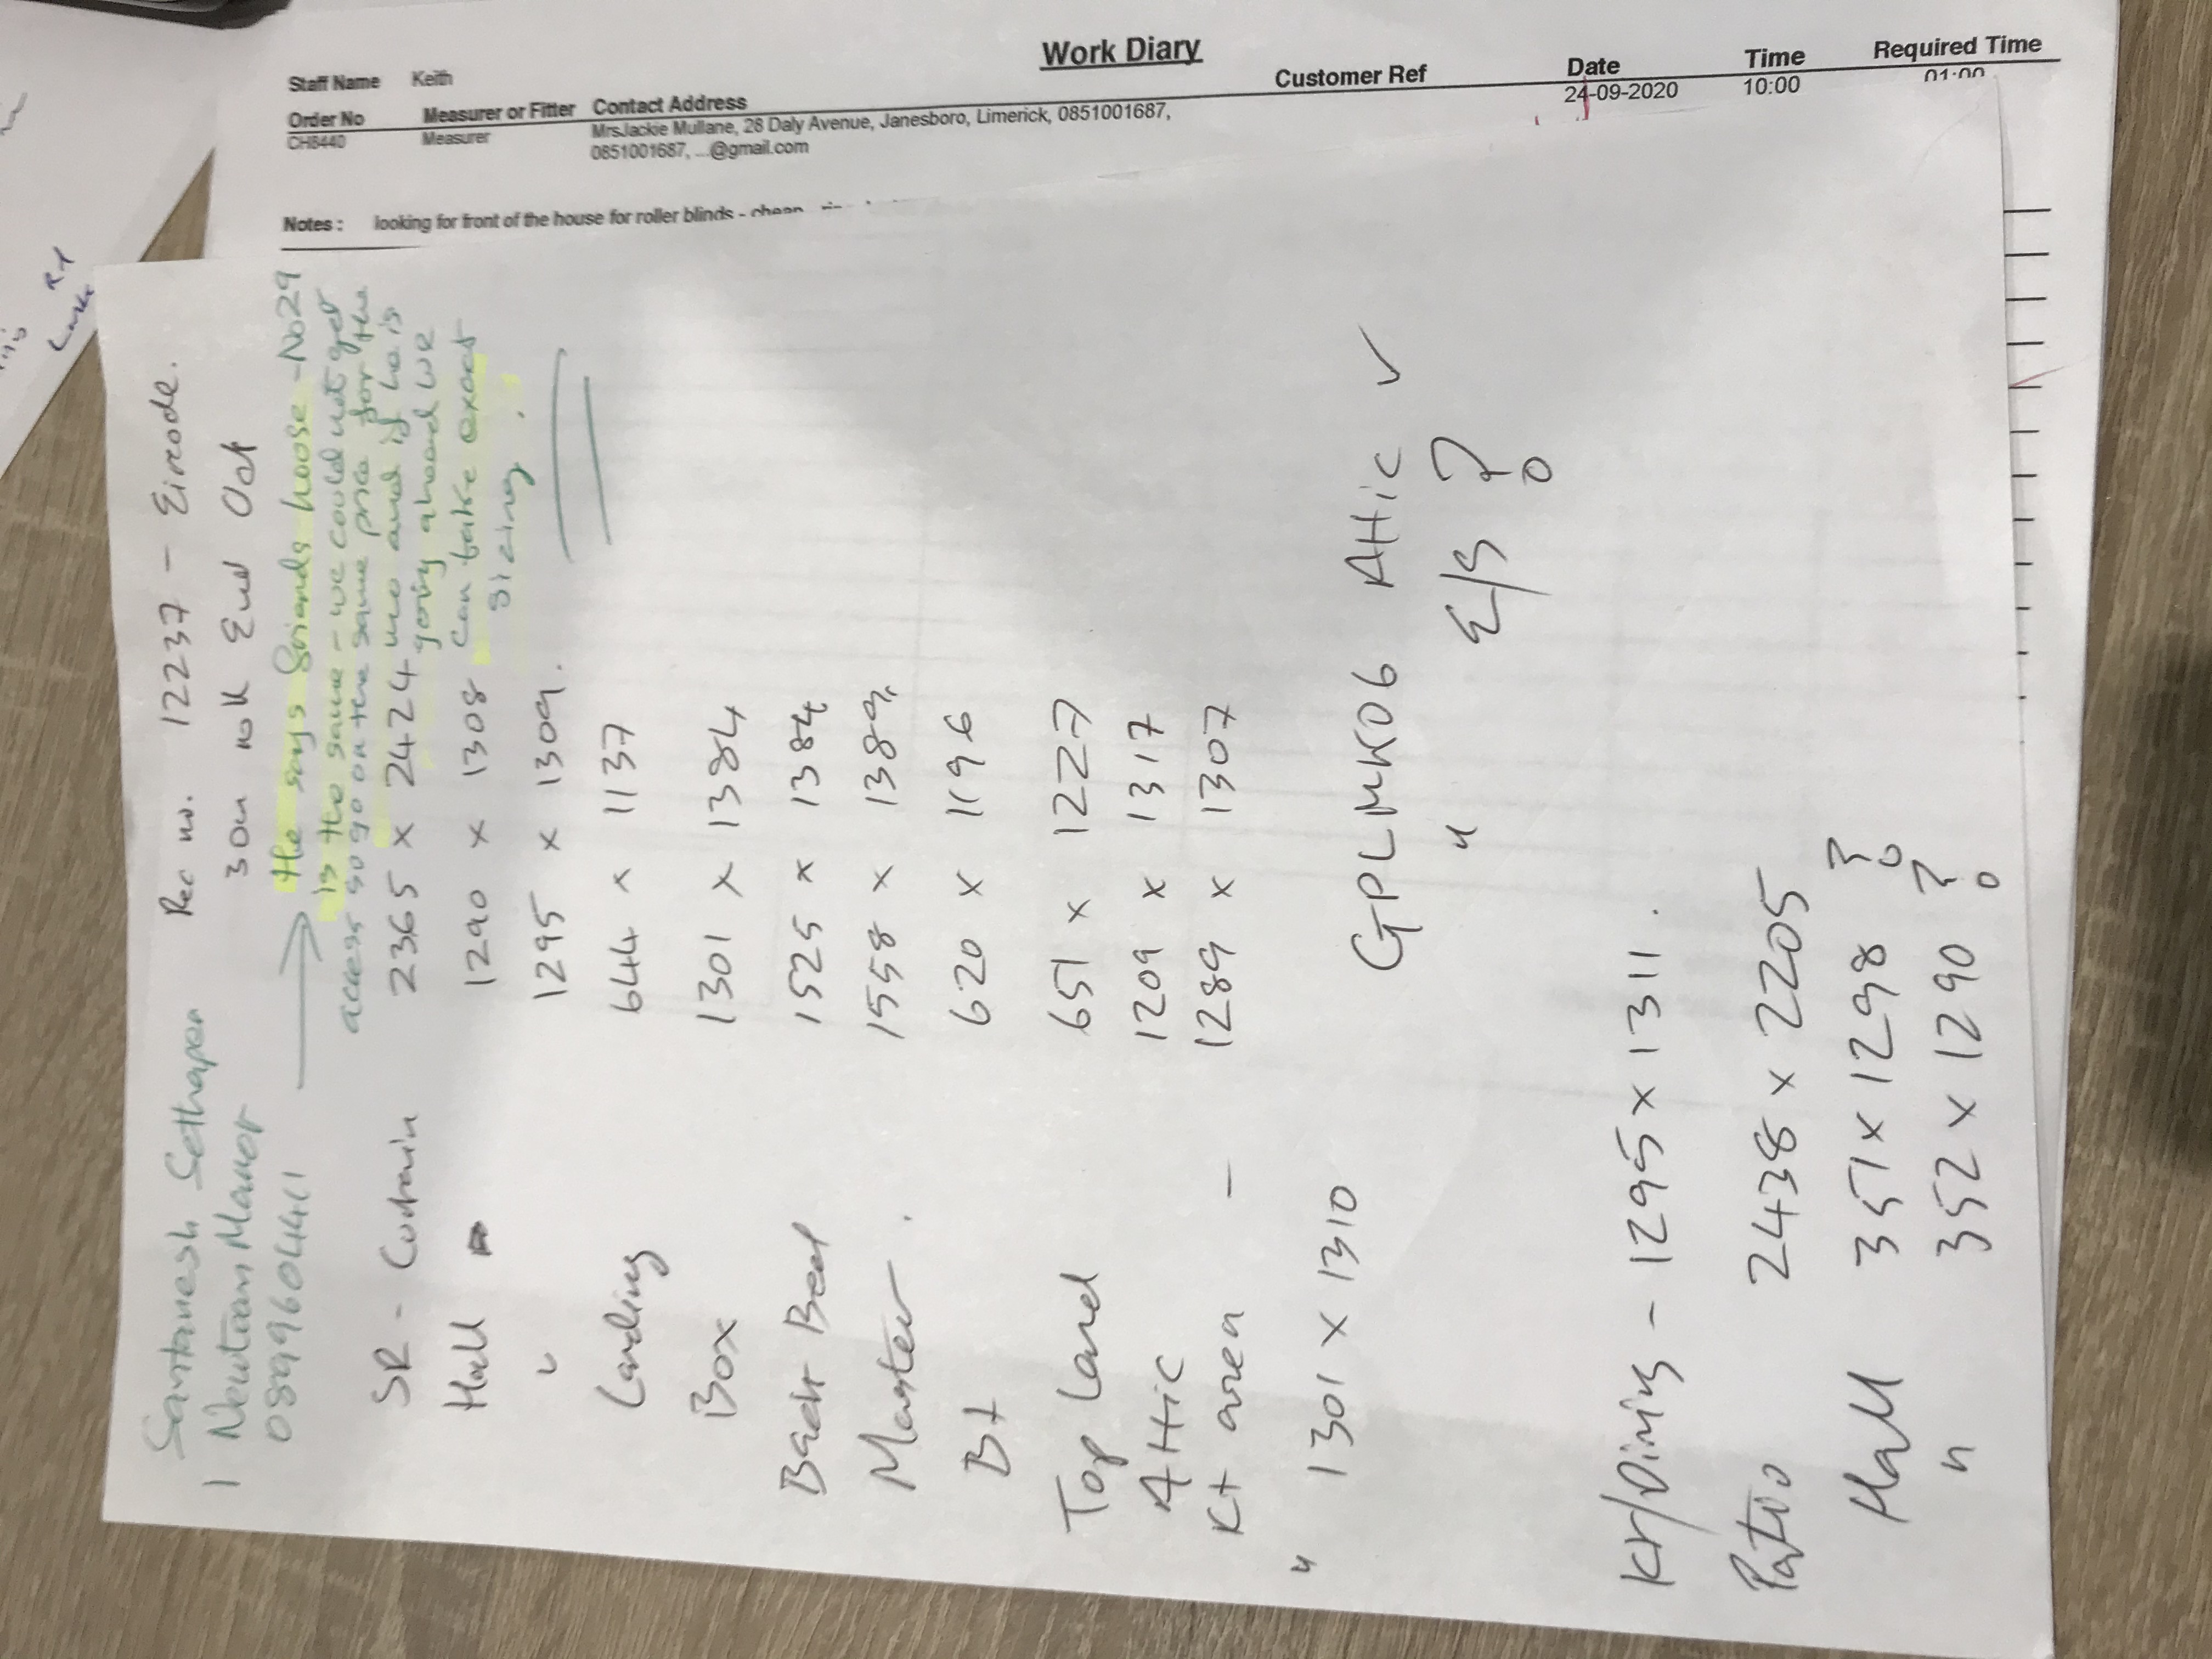 Work Diary
Staff Name Keith
Customer Ref Date Time Required Time
Order No Measurer or Fitter Contact Address
CH8440 Measurer MrsJackie Mullane, 28 Daly Avenue, Janesboro, Limerick, 0851001687, 24-09-2020 10:00 01:00
0851001687, ...@gmail.com
Notes : looking for front of the house for roller blinds - cheap
Santanesh Sethapen Rec no. 12237 - Eircode.
1 Newtown Manor 30u roll End Oct
0899604411
He says friends house - No 29
is the same - we could not get
access so go on the same price for the
mo and if he is
going ahead we
can take exact
sizing.
SR - Curtain 2365 x 2424
Hall 1290 x 1308
" 1295 x 1309.
Landing 644 x 1137
Box 1301 x 1384
Back Bed 1525 x 1384
Master. 1558 x 1389
Bt 620 x 1196
Top Land 651 x 1227
Attic 1209 x 1317
Kt area - 1289 x 1307
" 1301 x 1310
GPLMK06 Attic ✓
" E/S ?
Kt/Dining - 1295 x 1311.
Patio 2438 x 2205
Hall 351 x 1298 ?
" 352 x 1290 ?